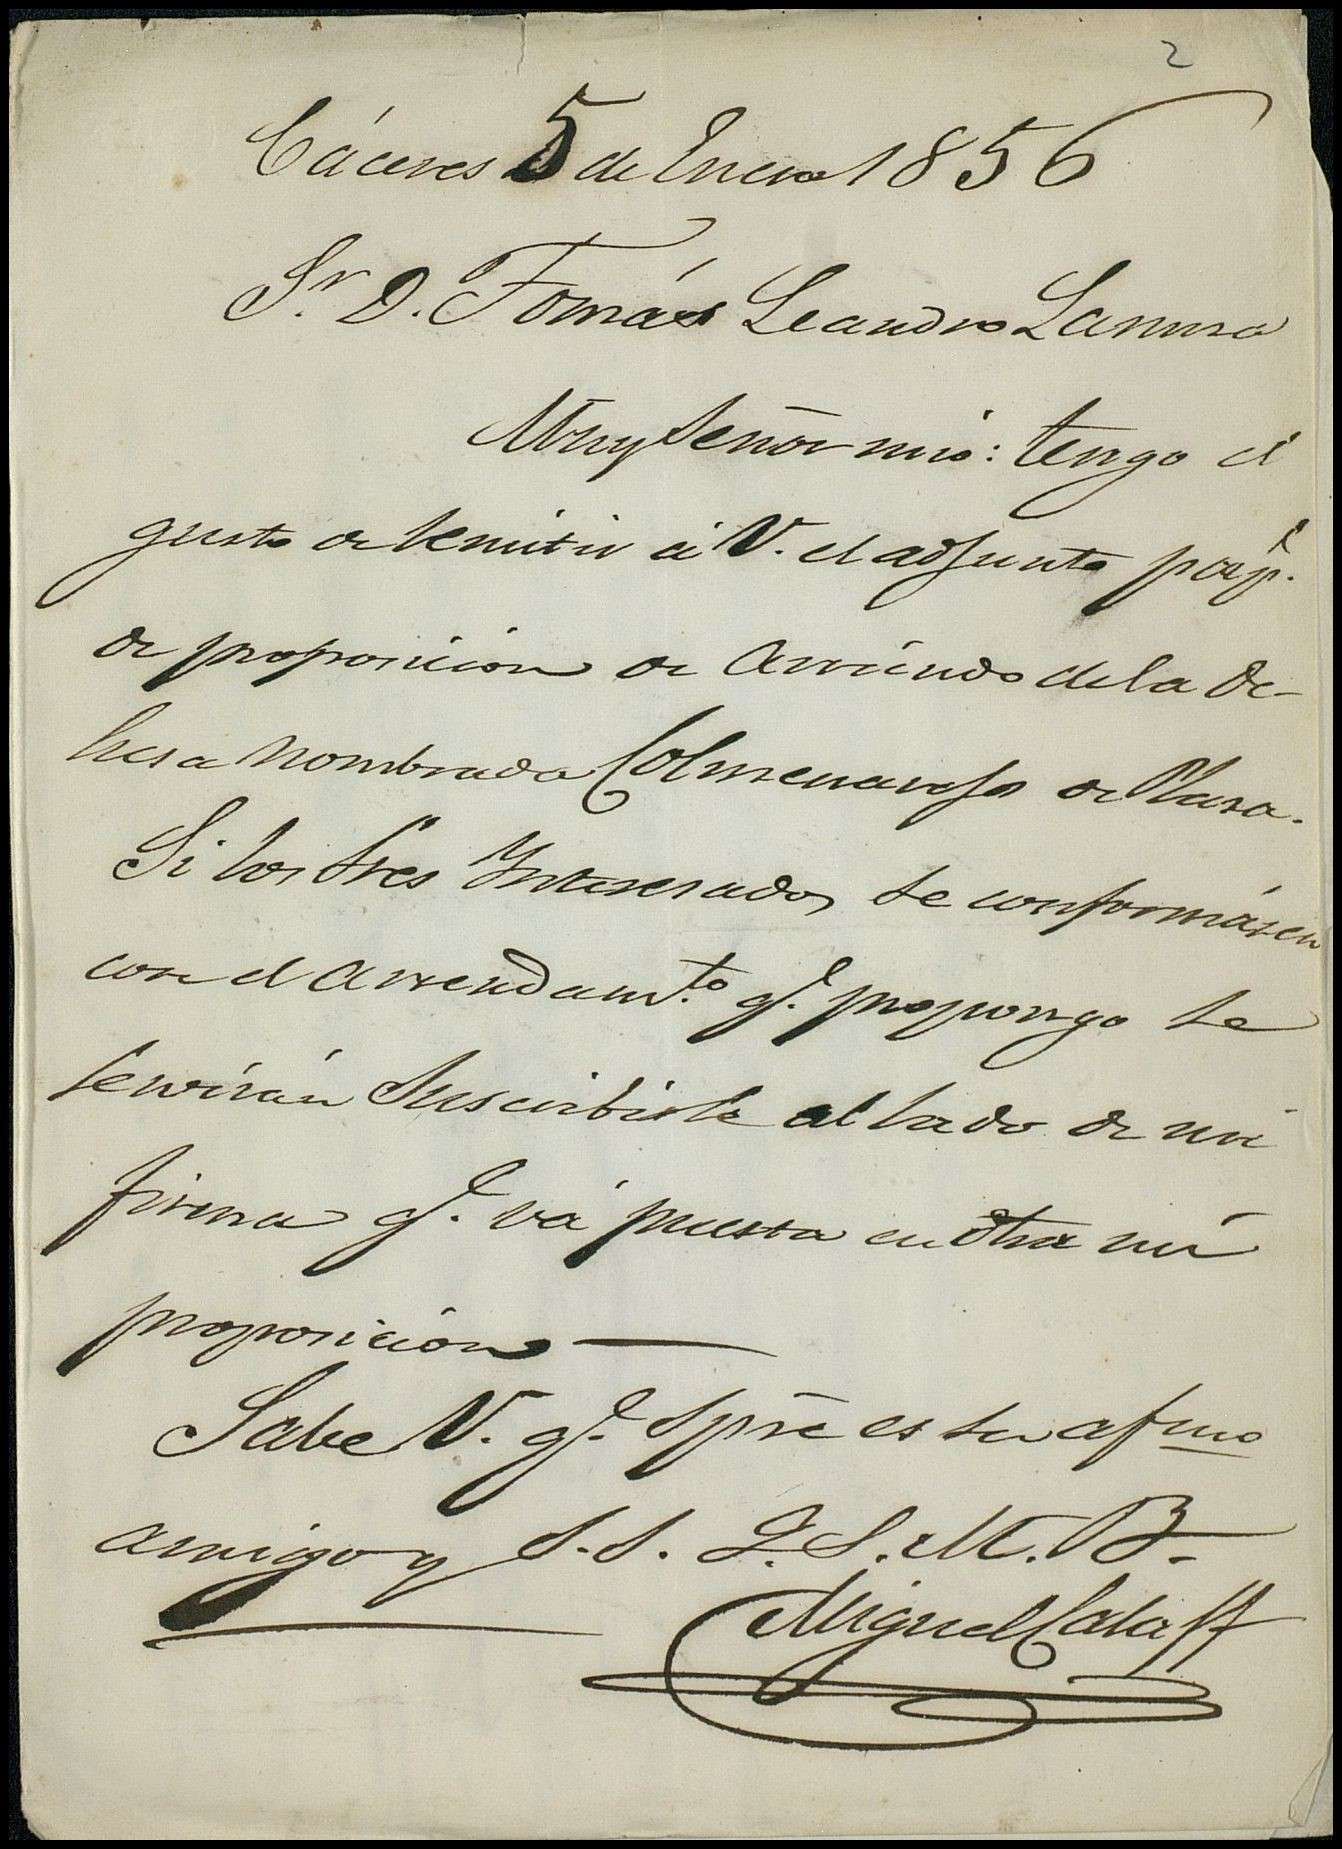 2
Cáceres 5 de Enero 1856
Sr. D. Tomás Leandro Lanuza
Muy Señor mio: tengo el
gusto de remitir á V. el adjunto pap.l
de proposicion de Arriendo de la De-
hesa nombrada Colmenarejo de Plasa.
Si los tres Interesados se conformásen
con el arrendam.to q.e propongo se
servirán suscribirle al lado de mi
firma q.e vá puesta en otra mí
proposicion
Sabe V. q.e spre es su afmo
amigo y S. S. Q. S. M. B.
Miguel Calaff